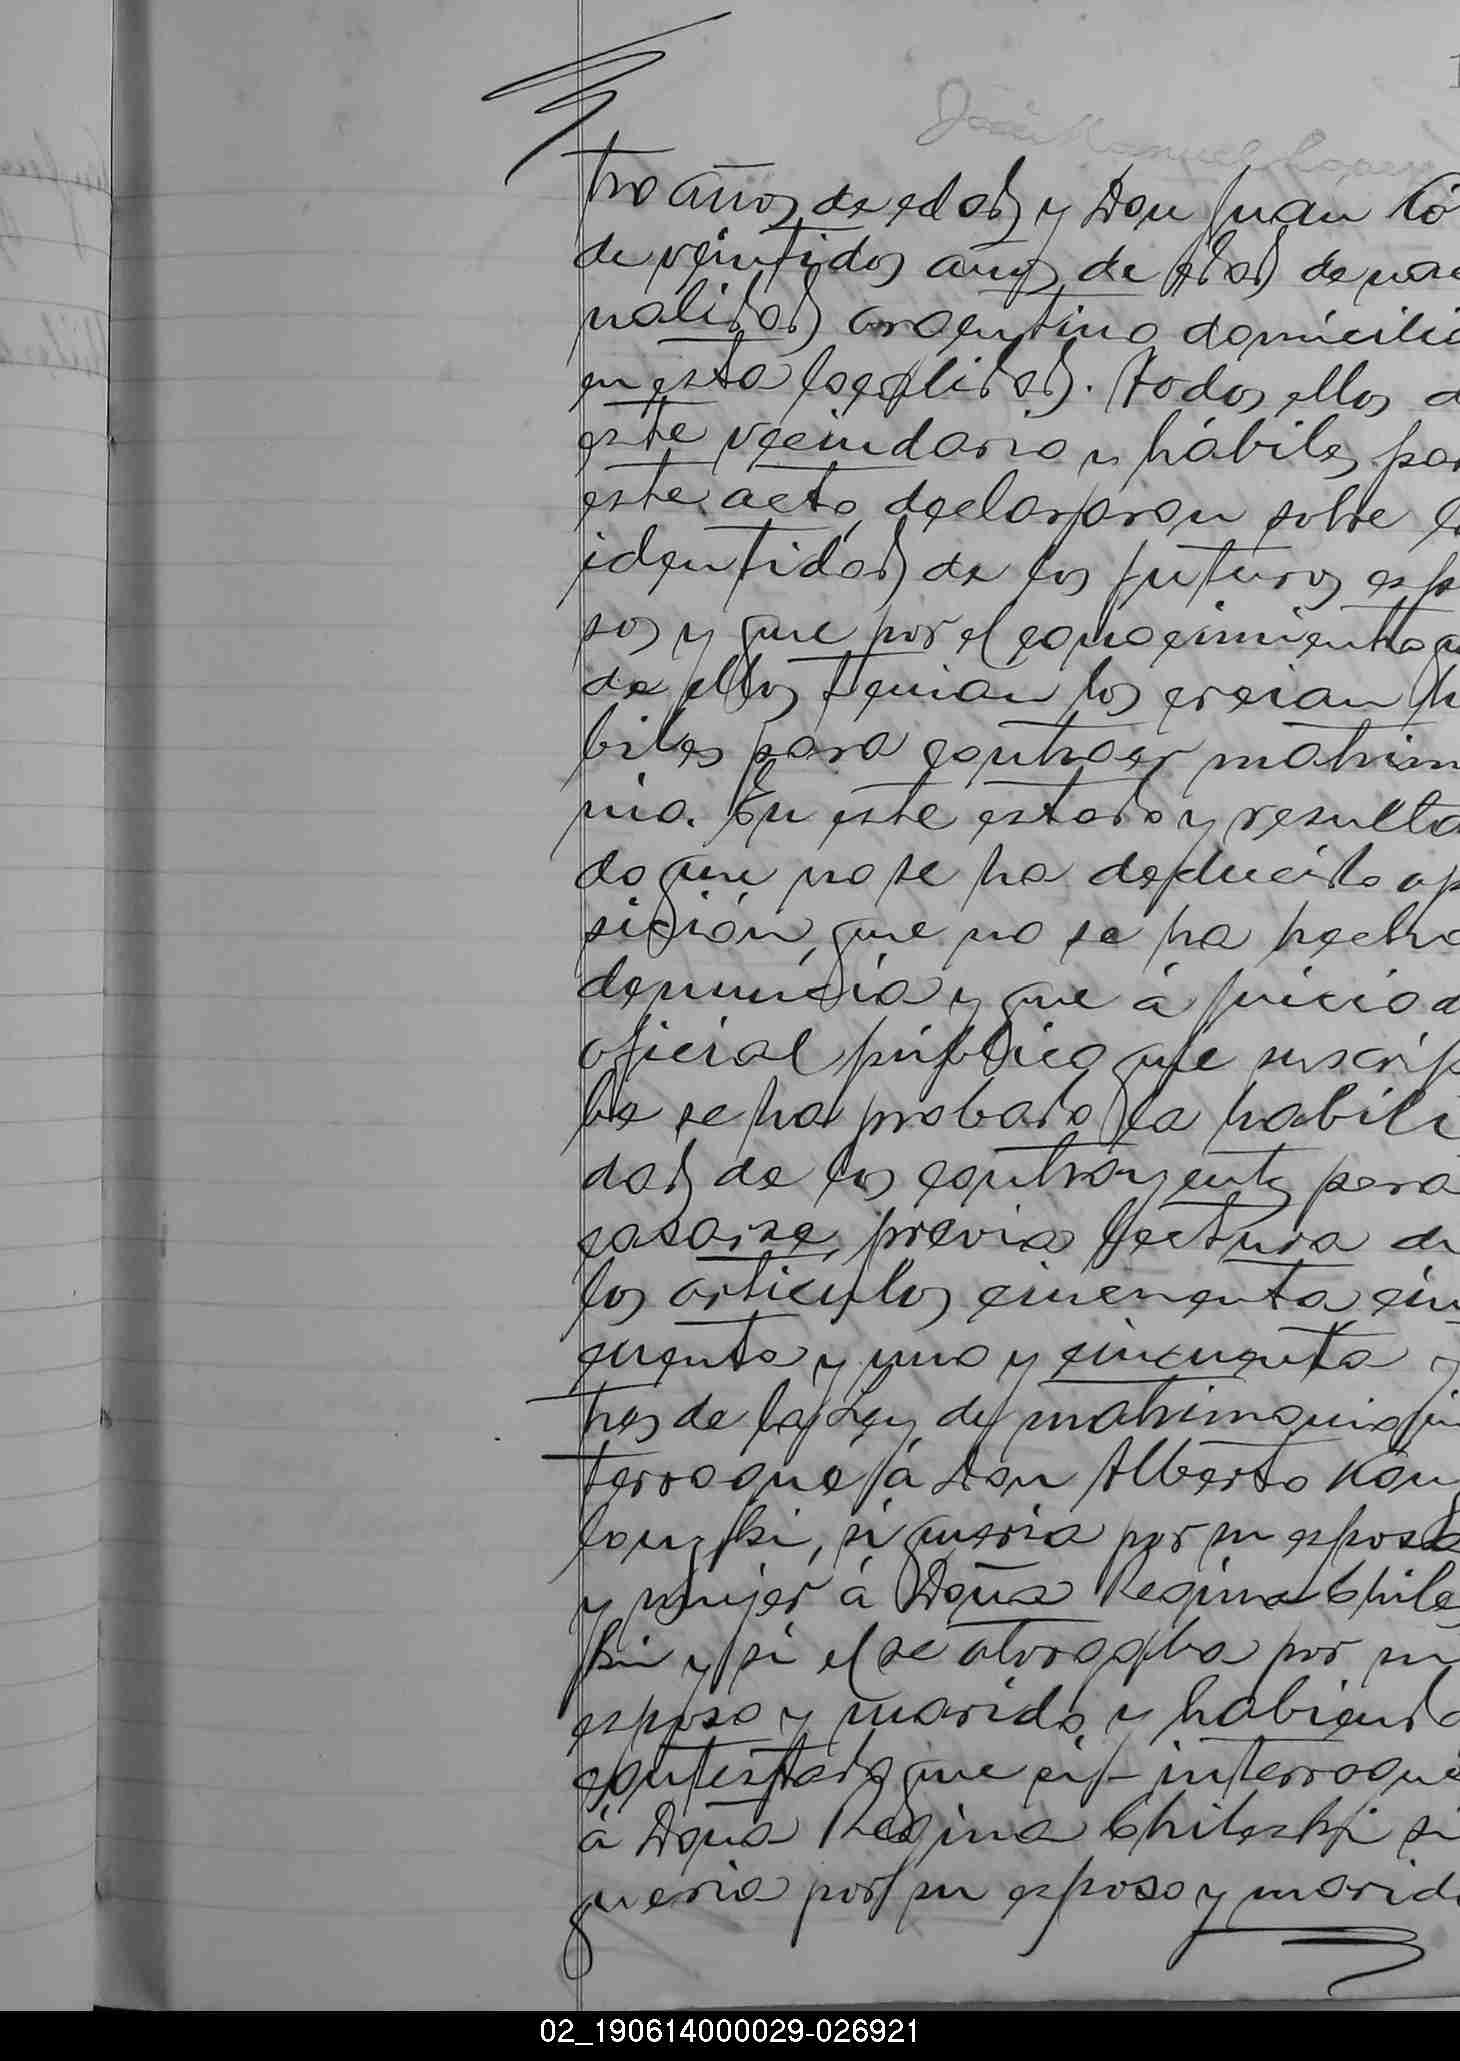 tro años de edad y Don Juan Có
de veintidos años de edad de nac
nalidad argentino domicilia
en esta localidad. todos ellos d
este vecindario y hábiles par
este acto, declararon sobre l
identidad de los futuros espo
sos y que por el conocimiento q
de ellos tenian los creian h
biles para contraer matrim
nio. En este estado y resulta
do que no se ha deducido opo
sición, que no se ha hecho
denuncia y que á juicio d
oficial público que suscrip
be se ha probado la habili
dad de los contrayentes para
casarse, previa lectura de
los articulos cincuenta cin
cuenta y uno y cincuenta y
tres de la Ley de matrimonio in
terrogué á Don Alberto Kon
louzski, si queria por su esposa
y mujer á Doña Regina Chiles
ki y si el se otorgaba por su
esposo y marido y habiendo
contestado que si – interrogué
á Doña Regina Chileski si
queria por su esposo y marido
02_190614000029-026921